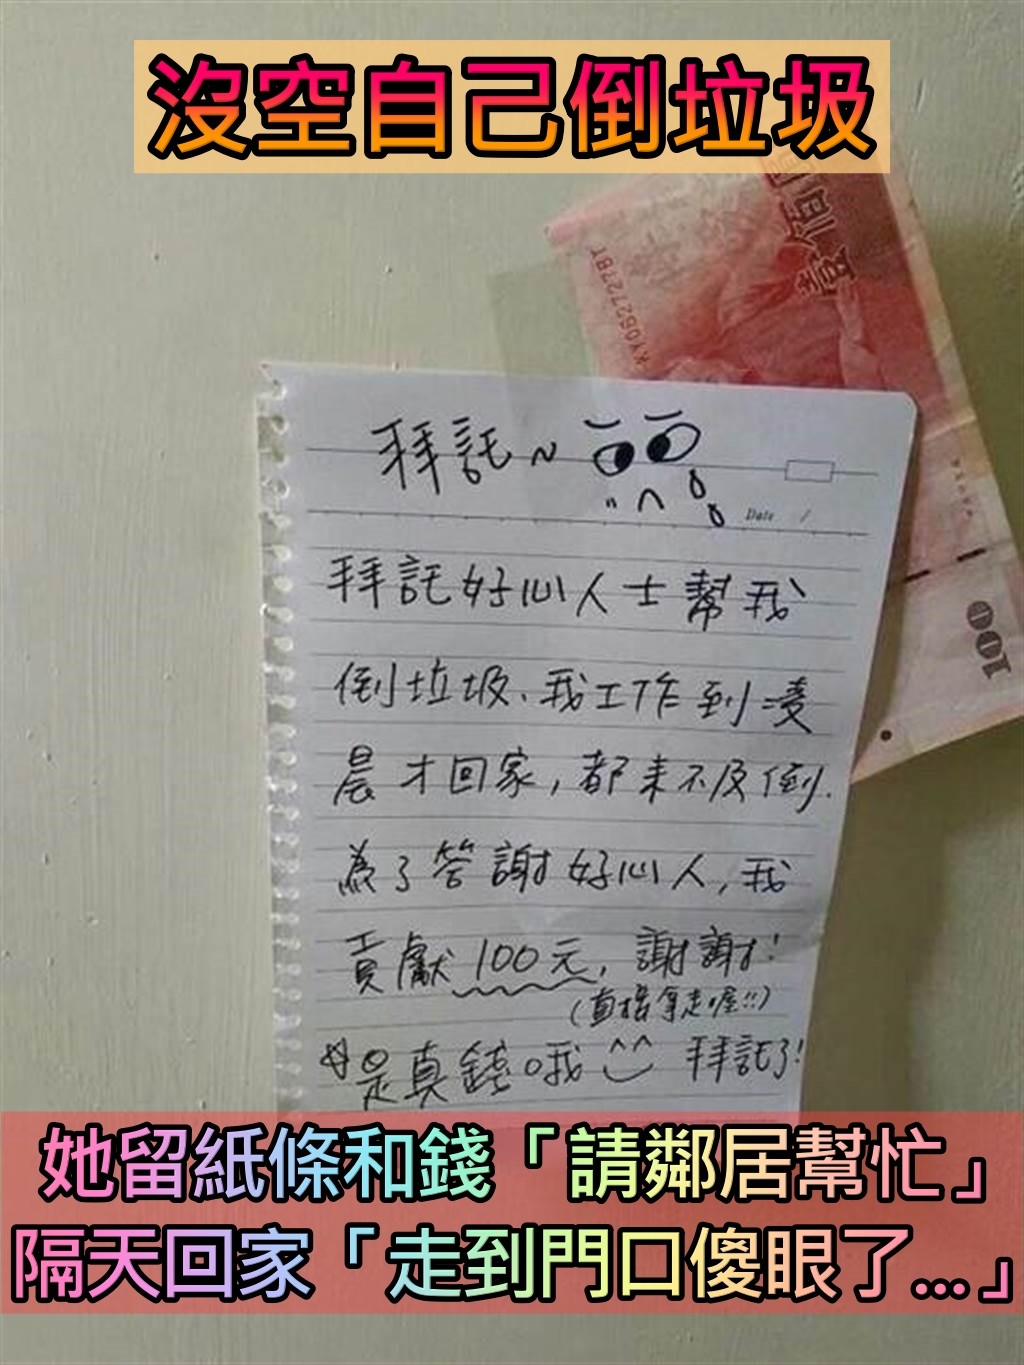 沒空自己倒垃圾
壹佰圓
KY062727BY
100
拜託~
Date /
拜託好心人士幫我
倒垃圾、我工作到凌
晨才回家,都來不及倒.
為了答謝好心人,我
貢獻100元,謝謝!
(直接拿走喔!!)
是真錢哦^^ 拜託了!
她留紙條和錢「請鄰居幫忙」
隔天回家「走到門口傻眼了...」